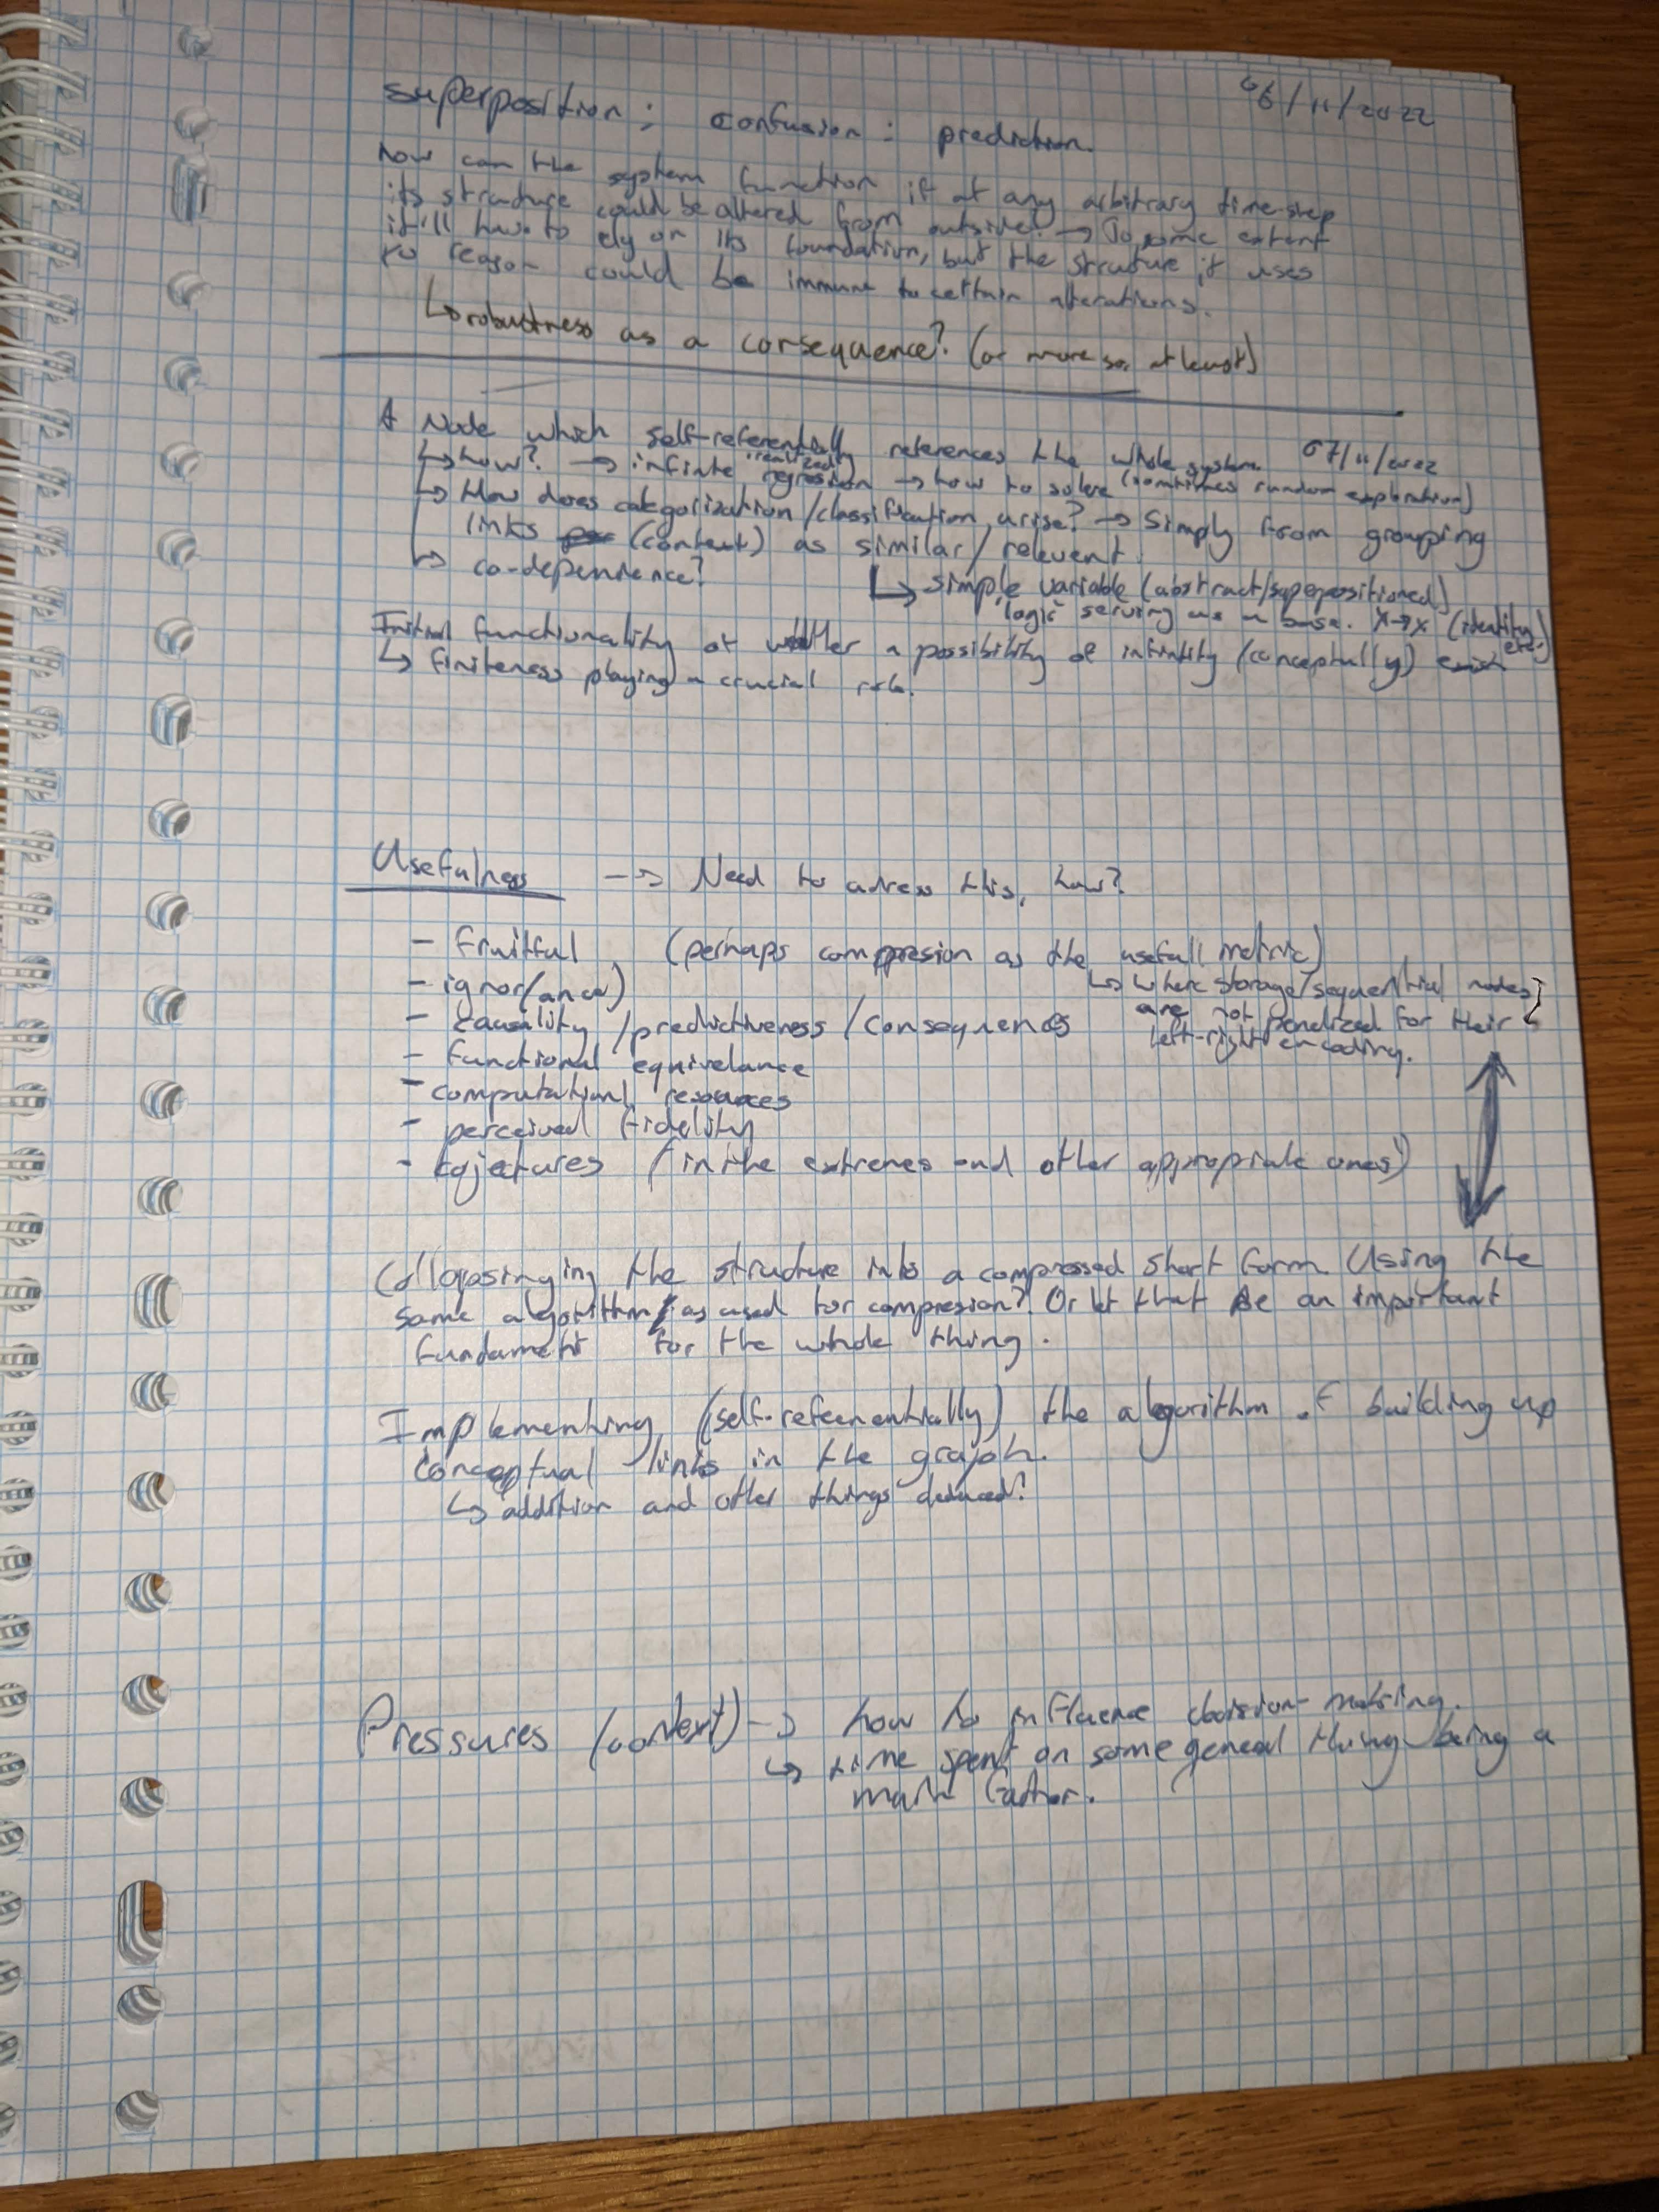 06/11/2022
superposition; confusion: prediction.
How can the system function if at any arbitrary time-step
its structure could be altered from outside? → To some extent
it'll have to rly on its foundation, but the structure it uses
to reason could be immune to certain alterations.
↳ robustness as a consequence? (or more so, at least)
07/11/2022
A Node which self-referentially references the whole system
↳ how? → infinite regression → how to solve (sometimes random exploration)
↳ How does categorization/classification arise? → Simply from grouping
links (context) as similar/relevent.
↳ co-dependence?
↳ simple variable (abstract/superpositioned)
logic serving as a base. X→X (identity, etc.)
Initial functionality of whether a possibility of infinity (conceptually) exist
↳ finiteness playing a crucial role.
Usefulness --> Need to adress this, how?
- fruitful (perhaps compresion as the usefull metric)
↳ where storage/sequential nodes
are not penalized for their
left-right encoding.
- ignor(ance)
- causality/predictiveness/consequences
- functional equivelance
- computational resources
- perceived fidelity
- cojectures (in the extremes and other appropriate ones)
Collopasinging the structure into a compressed short form. Using the
same algorithm as used for compresion? Or let that be an important
fundament for the whole thing.
Implementing (self-refeerentially) the algorithm of building up
conceptual links in the graph.
↳ addition and other things deduced?
Pressures (context) --> how to influence decision-making.
↳ time spent on some general thing being a
main factor.